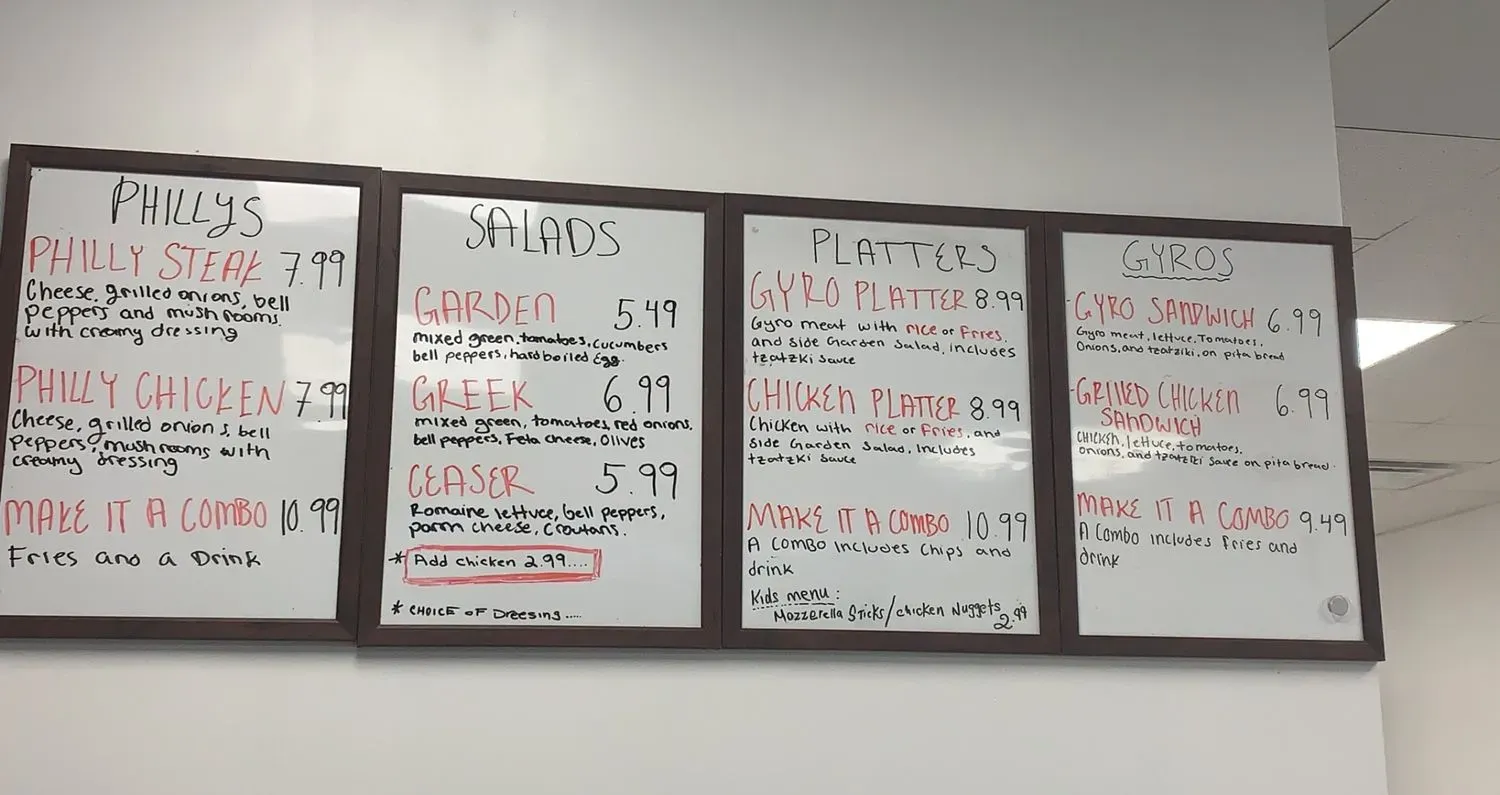 PHILLYS
PHILLY STEAK 7.99
Cheese, grilled onions, bell
peppers and mushrooms.
with creamy dressing
PHILLY CHICKEN 7.99
Cheese, grilled onions, bell
peppers, mushrooms with
creamy dressing
MAKE IT A COMBO 10.99
Fries and a Drink
SALADS
GARDEN 5.49
mixed green, tomatoes, cucumbers
bell peppers, hard boiled Egg.
GREEK 6.99
mixed green, tomatoes, red onions,
bell peppers, Feta cheese, Olives
CEASER 5.99
Romaine lettuce, bell peppers,
parm cheese, Croutans.
* Add chicken 2.99....
* CHOICE OF Dreesing.....
PLATTERS
GYRO PLATTER 8.99
Gyro meat with rice or Fries,
and side Garden Salad, includes
tzatzki sauce
CHICKEN PLATTER 8.99
Chicken with rice or Fries, and
Side Garden Salad, Includes
tzatzki sauce
MAKE IT A COMBO 10.99
A Combo includes Chips and
drink
Kids menu:
Mozzerella Sticks/chicken Nuggets 2.99
GYROS
-GYRO SANDWICH 6.99
Gyro meat, lettuce, Tomatoes,
Onions, and tzatziki, on pita bread
-GRILLED CHICKEN 6.99
SANDWICH
CHICKEN, lettuce, tomatoes,
onions, and tzatziki sauce on pita bread.
MAKE IT A COMBO 9.49
A Combo includes Fries and
drink